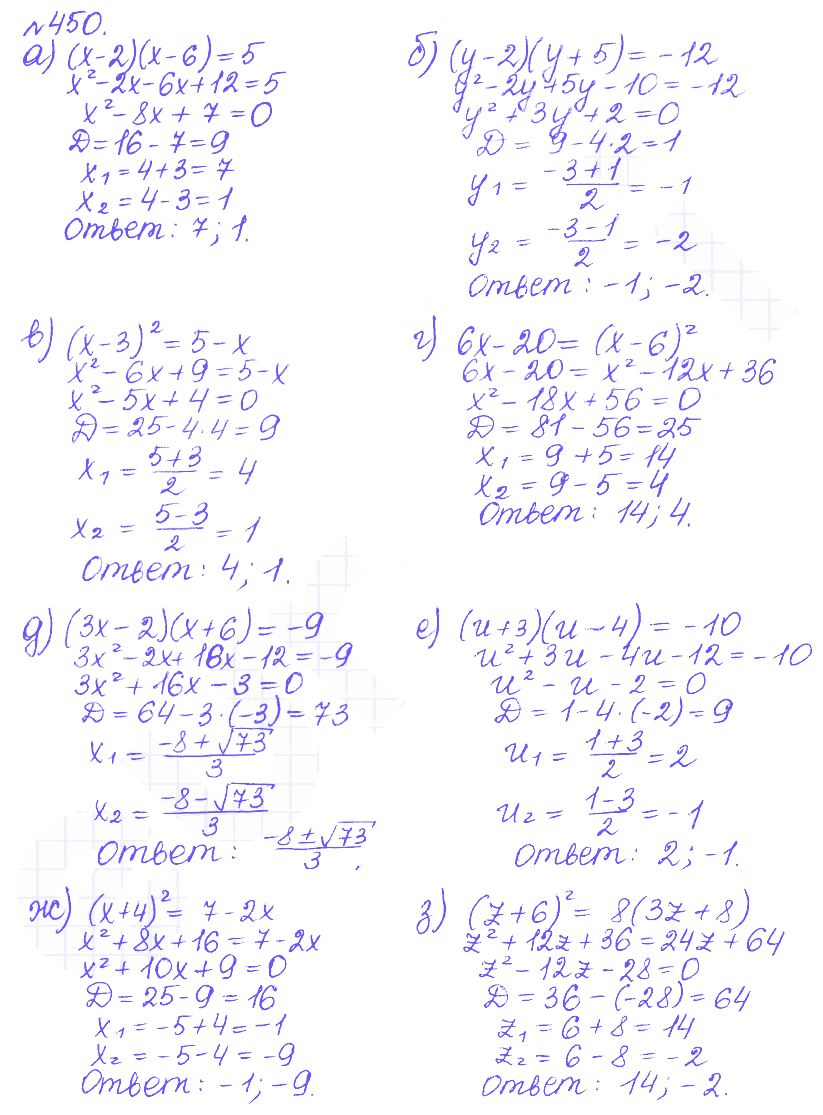 №450.
а) (x-2)(x-6)=5
x²-2x-6x+12=5
x²-8x+7=0
Д=16-7=9
x₁=4+3=7
x₂=4-3=1
Ответ: 7; 1.
б) (y-2)(y+5)=-12
y²-2y+5y-10=-12
y²+3y+2=0
Д=9-4·2=1
y₁=(-3+1)/2=-1
y₂=(-3-1)/2=-2
Ответ: -1; -2.
в) (x-3)²=5-x
x²-6x+9=5-x
x²-5x+4=0
Д=25-4·4=9
x₁=(5+3)/2=4
x₂=(5-3)/2=1
Ответ: 4; 1.
г) 6x-20=(x-6)²
6x-20=x²-12x+36
x²-18x+56=0
Д=81-56=25
x₁=9+5=14
x₂=9-5=4
Ответ: 14; 4.
д) (3x-2)(x+6)=-9
3x²-2x+18x-12=-9
3x²+16x-3=0
Д=64-3·(-3)=73
x₁=(-8+√73)/3
x₂=(-8-√73)/3
Ответ: (-8±√73)/3.
е) (u+3)(u-4)=-10
u²+3u-4u-12=-10
u²-u-2=0
Д=1-4·(-2)=9
u₁=(1+3)/2=2
u₂=(1-3)/2=-1
Ответ: 2; -1.
ж) (x+4)²=7-2x
x²+8x+16=7-2x
x²+10x+9=0
Д=25-9=16
x₁=-5+4=-1
x₂=-5-4=-9
Ответ: -1; -9.
з) (z+6)²=8(3z+8)
z²+12z+36=24z+64
z²-12z-28=0
Д=36-(-28)=64
z₁=6+8=14
z₂=6-8=-2
Ответ: 14; -2.